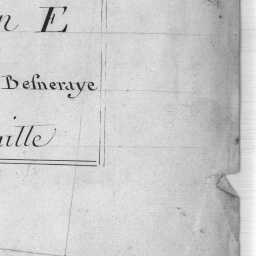 n E
Desneraye
ille